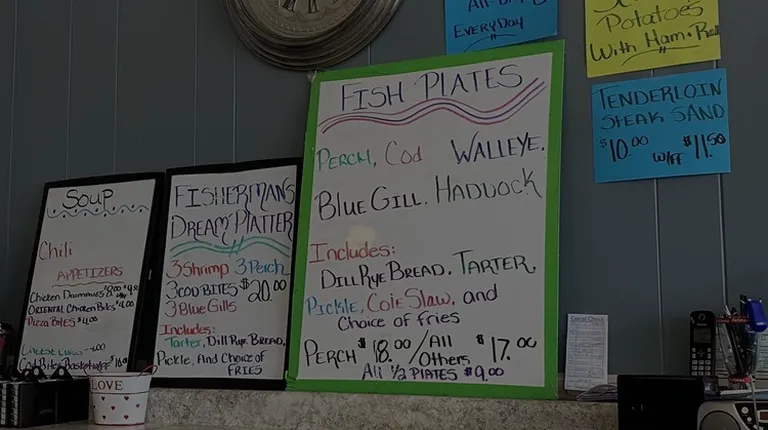 All-Day
EVERYDAY
POTATOES
With Ham + Roll
TENDERLOIN
STEAK SAND
$10.00 W/FF $11.50
FISH PLATES
PERCH, Cod WALLEYE.
BLUE GILL. HADDOCK
Includes:
DILL RYE BREAD, TARTER,
Pickle, Cole Slaw, and
Choice of fries
PERCH $18.00 / All Others $17.00
All 1/2 PLATES $9.00
FISHERMANS
DREAM PLATTER
3 Shrimp 3 Perch
3 COD BITES $20.00
3 Blue Gills
Includes:
Tarter, Dill Rye Bread,
Pickle, And Choice of
FRIES
SOUP
Chili
APPETIZERS
Chicken Drummies
ORIENTAL Chicken Bites $4.00
Pizza Bites $4.00
Guest Check
LOVE